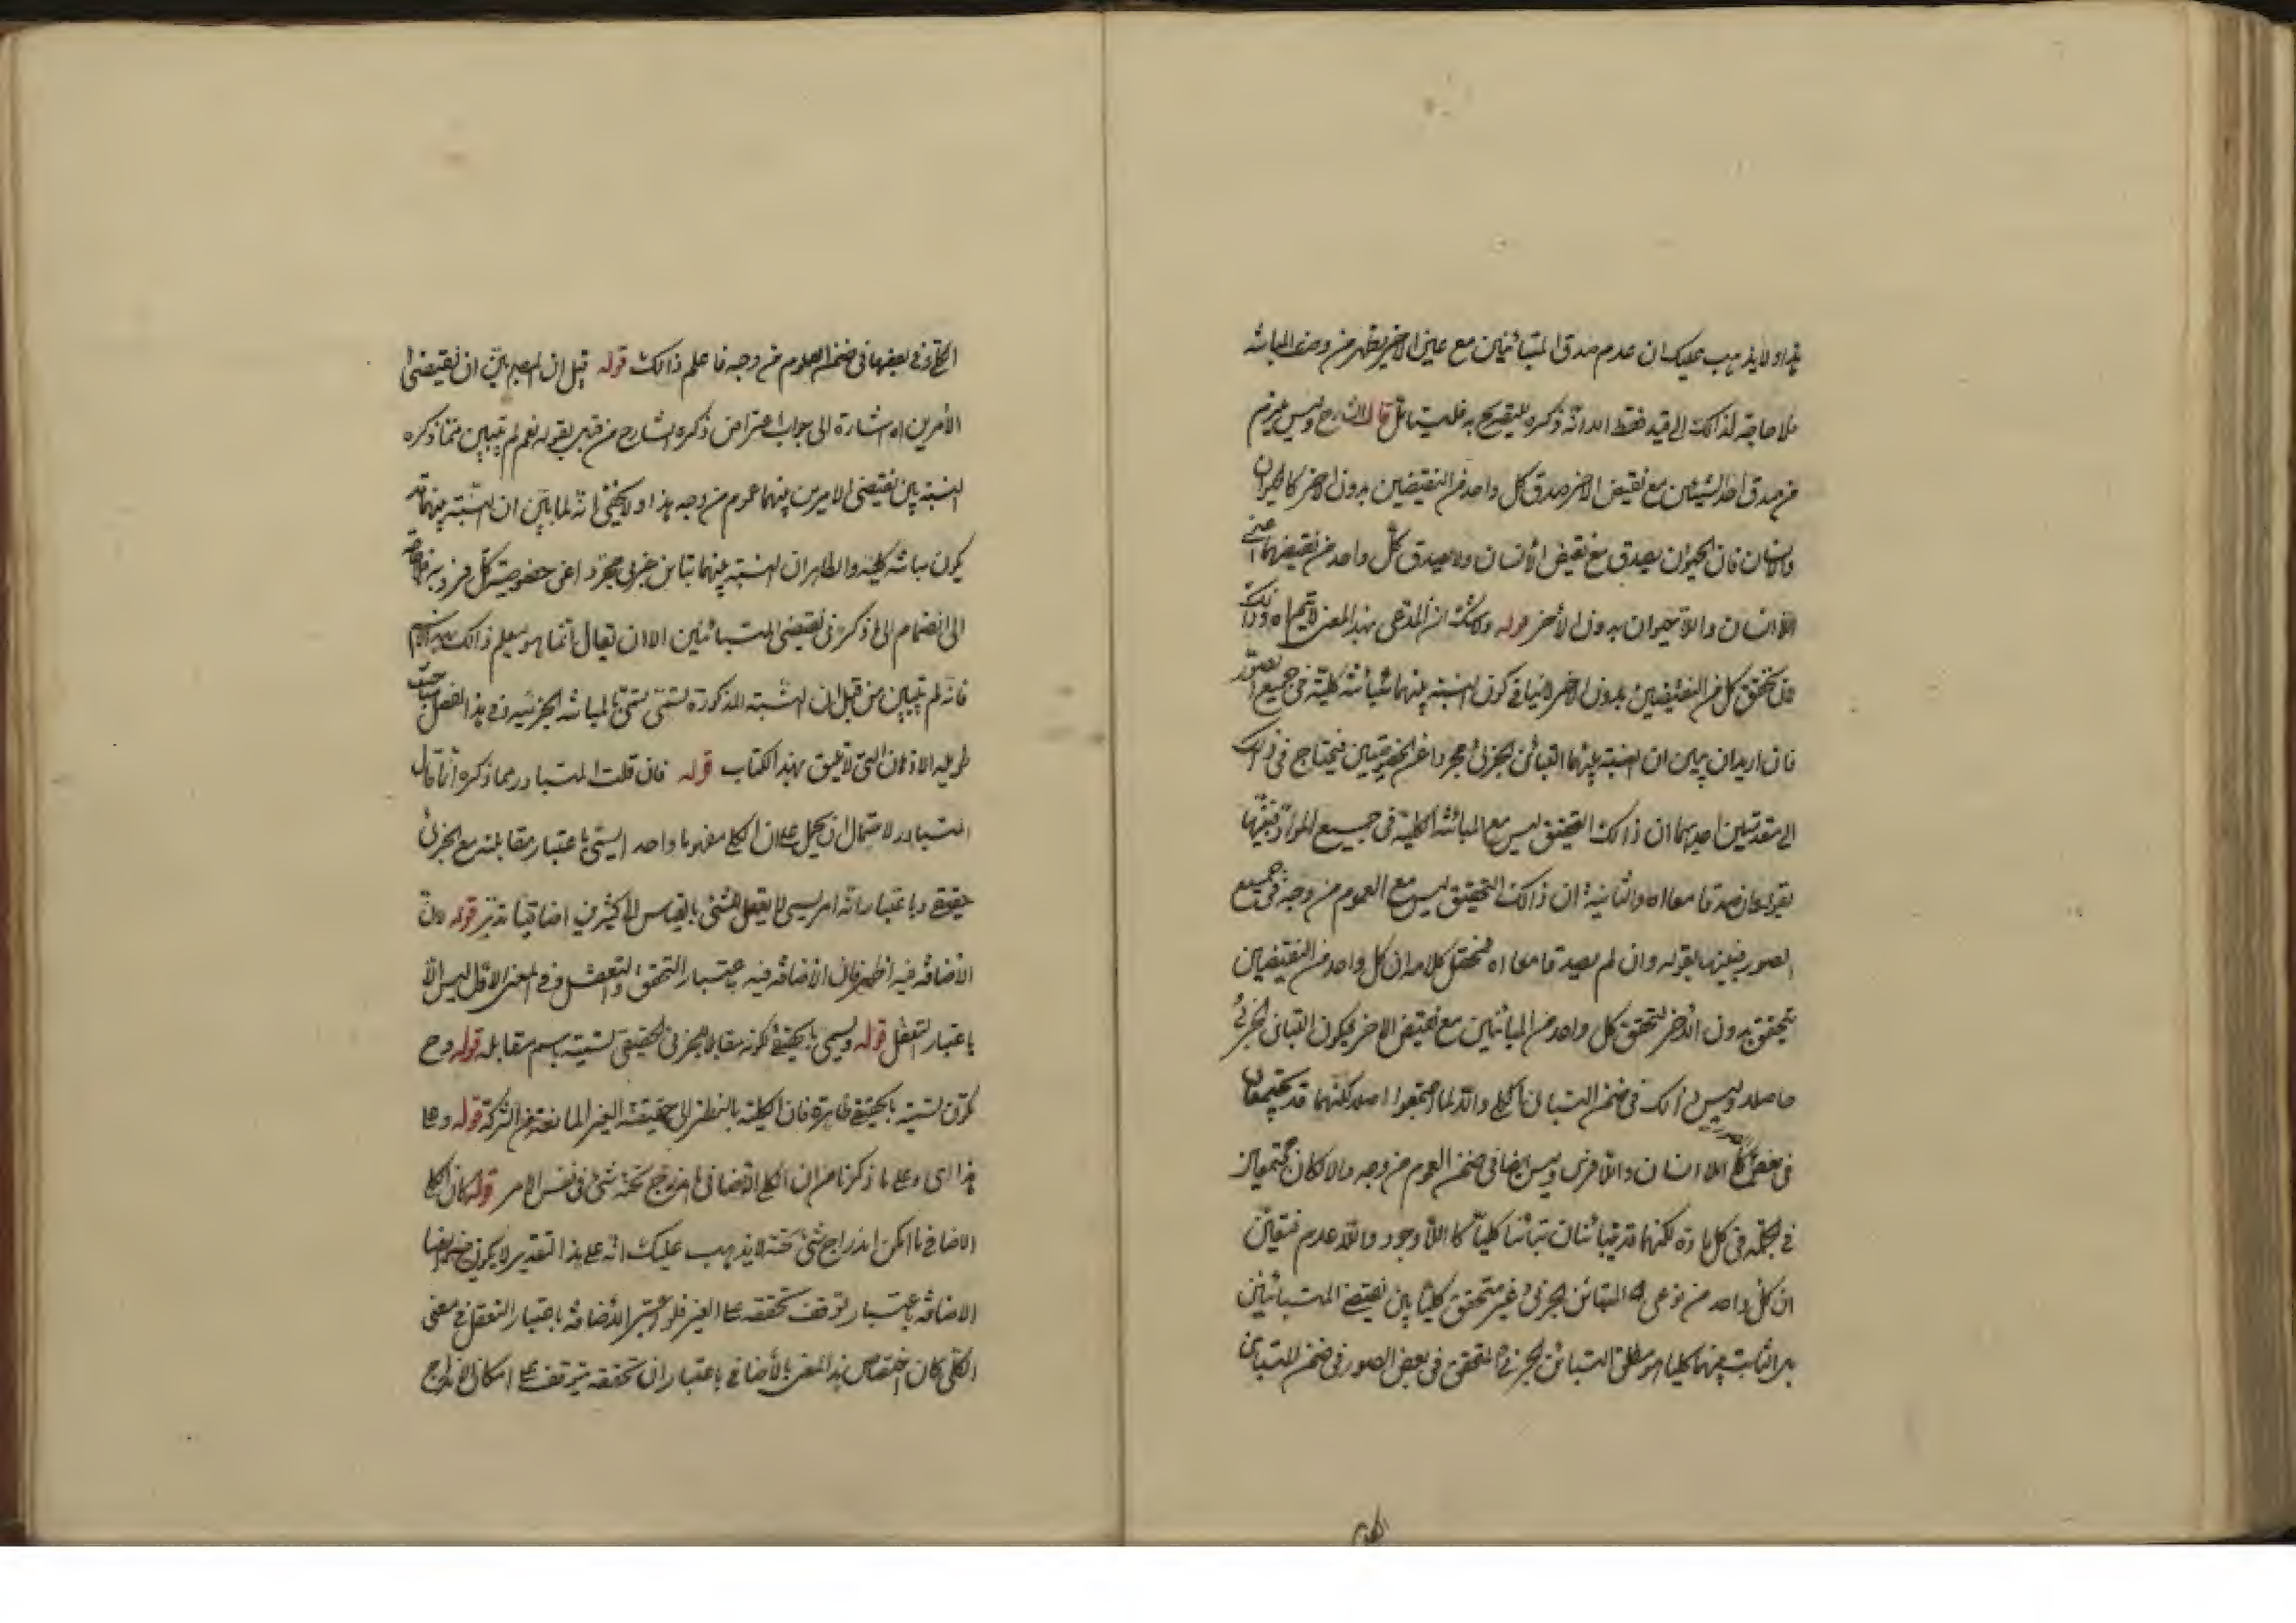 هذا ولا يذهب عليك ان عدم صدق المتبائنين مع عين الاخر يظهر من وضع المبائنة
فلا حاجة لذالك الى قيد فقط الا انه ذكره للتصريح به فليتامل قال الشارح وليس يلزم
من صدق احد الشيئين مع نقيض الاخر صدق كل واحد من النقيضين بدون الاخر كالحيوان
والانسان فان الحيوان يصدق مع نقيض الانسان ولا يصدق كل واحد من نقيضهما اعني
اللاانسان واللاحيوان بدون الاخر قوله وكانت ان المدعى بهذا المعنى لا يتم اه وذالك
لان تحقق كل من النقيضين بدون الاخر لا ينافي كون النسبة بينهما مبائنة كلية في جميع الصور
فان اريد ان يبين ان النسبة بينهما التبائن الجزئي مجردا عن الخصوصيتين فيحتاج في ذلك
الى مقدمتين احديهما ان ذالك التحقق ليس مع المبائنة الكلية في جميع المواد فبينها
بقوله فان صدقا معا اه والثانية ان ذالك التحقق ليس مع العموم من وجه في جميع
الصور فبينها بقوله وان لم يصدقا معا اه فمحصل كلامه ان كل واحد من النقيضين
يتحقق بدون الاخر لتحقق كل واحد من المبائنين مع نقيض الاخر فيكون التباين الجزئي
حاصلا وليس ذالك في ضمن التباين الكلي والا لما اجتمعوا اصلا لكنهما قد يجتمعان
في بعض اللاانسان واللافرس وليس ايضا في ضمن العموم من وجه والا لكانا مجتمعان
في الجملة في كل مادة لكنهما قد يتبائنان تبائنا كليا كاللاوجود واللاعدم فتعين
ان كل واحد من نوعي التبائن الجزئي غير متحقق كليا بين نقيضي المتبائنين
بل الثابت بينهما كليا هو مطلق التبائن الجزئي المتحقق في بعض الصور في ضمن التباين
الكلي وفي بعضها في ضمن العموم من وجه فاعلم ذالك قوله قيل ان المص بين ان نقيضي
الأمرين اه اشارة الى جواب اعتراض ذكره الشارح من قبل بقوله نعم لم يتبين مما ذكره
النسبة بين نقيضي الامرين بينهما عموم من وجه هذا ولا يخفى انه لما بين ان النسبة بينهما قد
يكون مبائنة كلية والظاهر ان النسبة بينهما تباين جزئي مجرد اعني خصوصية كل فرد
الى انضمام الى ما ذكره في نقيضي المتبائنين الا ان يقال انما هو يعلم ذالك
فانه لم يتبين من قبل ان النسبة المذكورة تسمى بالمبائنة الجزئية وفي هذا الفصل مباحث
طويلة الاذيال التي لا تليق بهذا الكتاب قوله فان قلت المتبادر مما ذكره انما قال
المتبادر لاحتمال ان يحمل على ان الكلي مفهوما واحدا يسمى باعتبار مقابلته مع الجزئي
حقيقي وباعتبار انه امر لا يعقل الشيء بالقياس الى كثيرين اضافيا تدبر قوله لان
الاضافة فيه اظهر فان الاضافة فيه باعتبار التحقق والتعقل وفي المعنى الاول ليس الا
باعتبار التعقل قوله ويسمى بالحقيقي لكونه مقابلا للجزئي الحقيقي تسمية باسم مقابله قوله وح
يكون تسميته بالحقيقي ظاهرة فان الكلية بالنظر الى حقيقته الغير المانعة من الشركة قوله وعلى
هذا اي وعلى ما ذكرنا من ان الكلي الاضافي ما اندرج تحته شئ في نفس الامر قوله كان الكلي
الاضافي ما امكن اندراج شئ تحته لا يذهب عليك انه على هذا التقدير لا يكون
الاضافة باعتبار توقف تحققه على الغير فلو اعتبر الاضافة باعتبار التعقل في معنى
الكلي كان اختصاص هذا المعنى بالأضافي باعتبار ان تحققه يتوقف على امكان اندراج